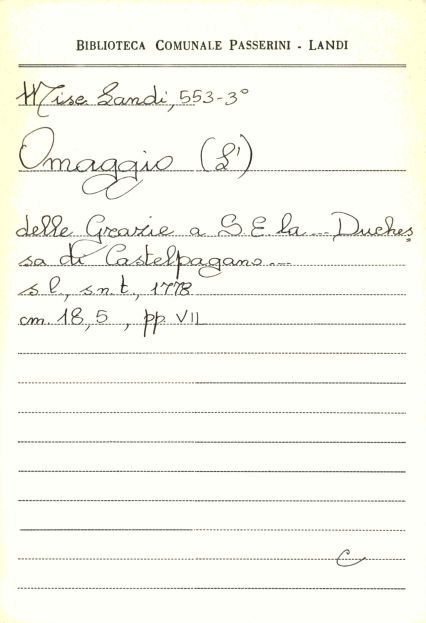 BIBLIOTECA COMUNALE PASSERINI - LANDI
Misc Landi, 553-3°
Omaggio (L')
delle Grazie a S.E. la ... Duches
sa di Castelpagano ...
s.l., s.n.t., 1778
cm. 18,5 , pp. VII
C